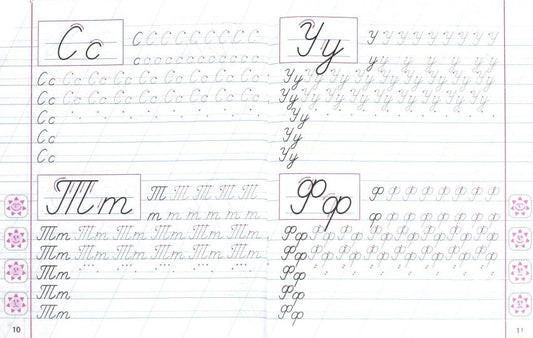 Сс
С С С С С С С С С
с с с с с с с с с с с с
Сс Сс Сс Сс Сс Сс Сс Сс Сс
Сс Сс Сс Сс Сс Сс Сс Сс Сс
Сс
Сс
Сс
Тт
Т Т Т Т Т
т т т т т т
Тт Тт Тт Тт Тт Тт
Тт Тт Тт Тт Тт Тт
Тт
Тт
Тт
10
Уу
У У У У У У У У У
у у у у у у
Уу Уу Уу Уу Уу Уу Уу Уу Уу
Уу Уу Уу Уу Уу Уу Уу Уу Уу
Уу
Уу
Уу
Фф
Ф Ф Ф Ф Ф Ф Ф Ф
ф ф ф ф ф ф ф ф
Фф Фф Фф Фф Фф Фф Фф Фф
Фф Фф Фф Фф Фф Фф Фф Фф
Фф
Фф
Фф
11